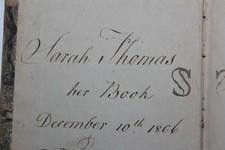 Sarah Thomas
her Book
December 10th 1806
S